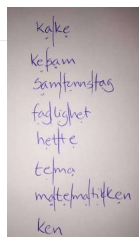 kake
samfunnsfag
faglighet
hette
tema
matematikken
ken